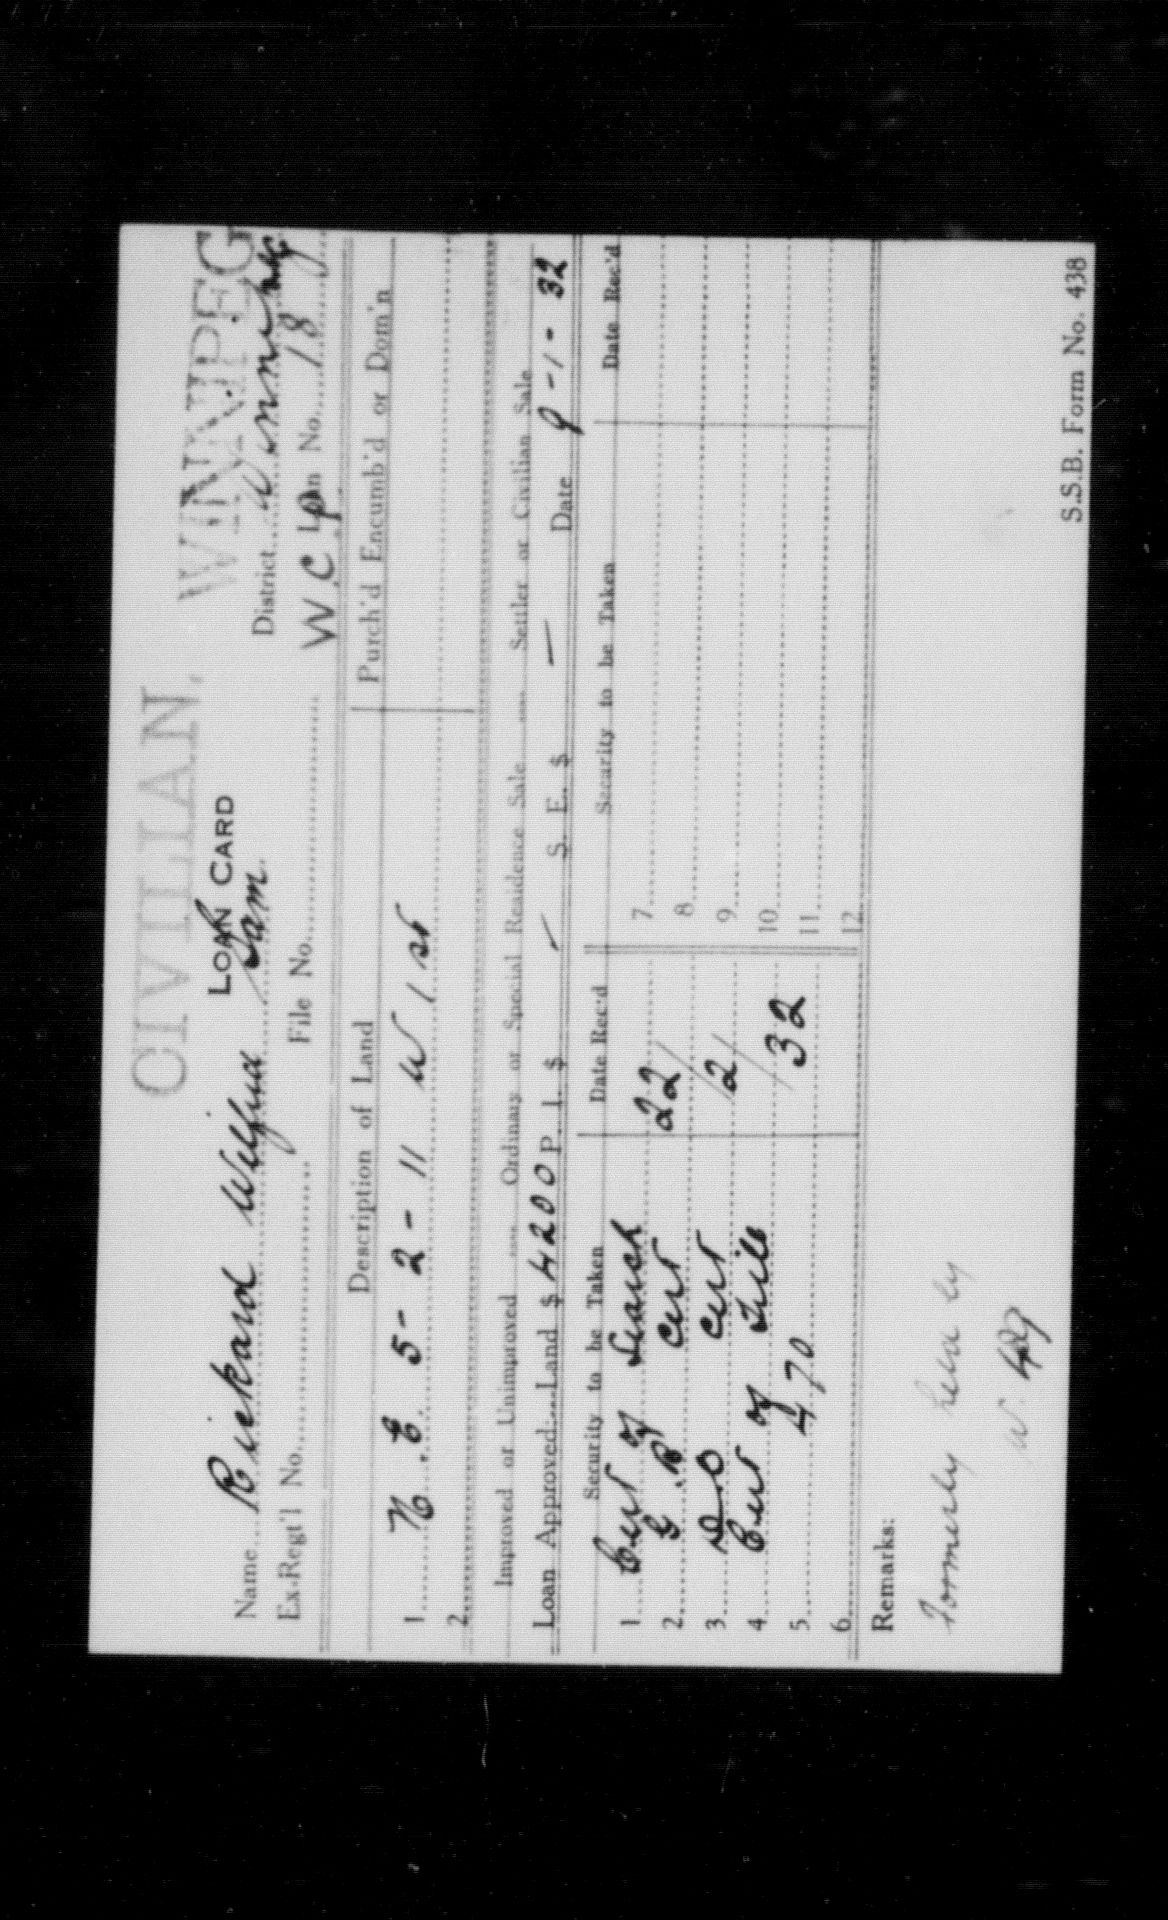 CIVILIAN. WINNIPEG
LOAN CARD
Name Rickard Wilfred Sam District Winnipeg
Ex-Regt'l No. File No. W.C.P. Loan No. 18
Description of Land Purch'd Encumb'd or Dom'n
1 N.E. 5-2-11 W 1st
2
Improved or Unimproved Ordinary or Special Residence Sale Settler or Civilian Sale
Loan Approved Land $ 4200 P. I. $ — S. E. $ — Date 9-1-32
Security to be Taken Date Rec'd Security to be Taken Date Rec'd
1 Cert of Search 22/ 7
2 G.R Cert 8
3 D.O Cert 2/ 9
4 Cert of Title 10
5 470 32 11
6 12
Remarks:
Formerly held by
W.
S.S.B. Form No. 438